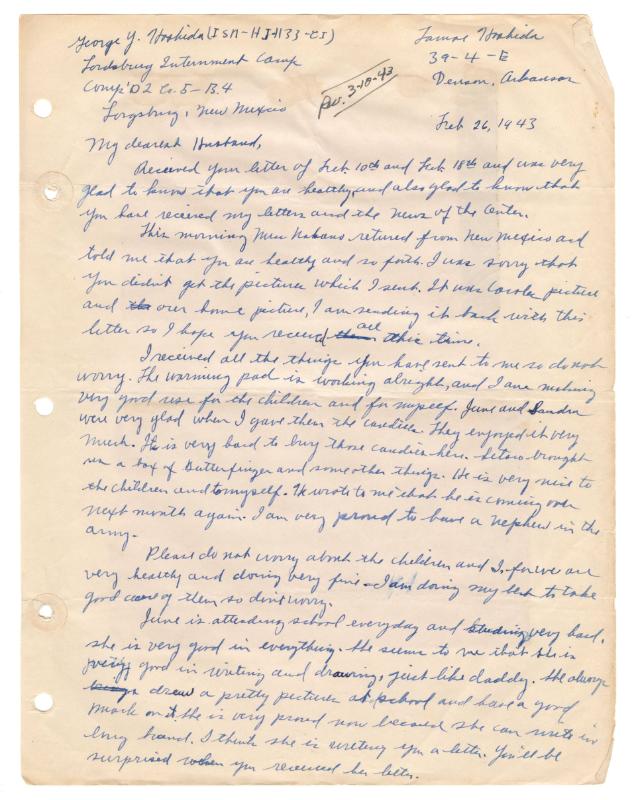 George Y. Hoshida (ISN-HJ-1133-CI)
Tamae Hoshida
Lordsburg Internment Camp
39-4-E
Comp'd 2 Co. 5-B.4
Denson, Arkansas
Lorgsburg, New Mexico
Rev. 3-18-43
Feb 26, 1943
My dearest Husband,
Received your letter of Feb. 10th and Feb. 18th and was very
glad to know that you are healthy, and also glad to know that
you have received my letters and the news of the Center.
This morning Mrs Nakano retured from New Mexico and
told me that you are healthy and so forth. I was sorry that
you didn't get the pictures which I sent. It was Carole picture
and over home picture, I am sending it back with this
letter so I hope you received all this time.
I received all the things you have sent to me so do not
worry. The warming pad is working alright, and I am making
very good use for the children and for myself. June and Sandra
were very glad when I gave them the candies. They enjoyed it very
much. It is very hard to buy those candies here. brought
us a box of Butterfinger and some other things. He is very nice to
the children and to myself. He wrote to me that he is coming over
next month again. I am very proud to have a nephew in the
army.
Please do not worry about the children and I, for we are
very healthy and doing very fine. I am doing my best to take
good care of them so don't worry.
June is attending school everyday and studing very hard.
she is very good in everything. She seems to me that she is
good in writing and drawing, just like daddy. She always
drew a pretty pictures at school and have a good
mark on it. She is very proud now because she can write in
long hand. I think she is writing you a letter. You'll be
surprised when you received her letter.